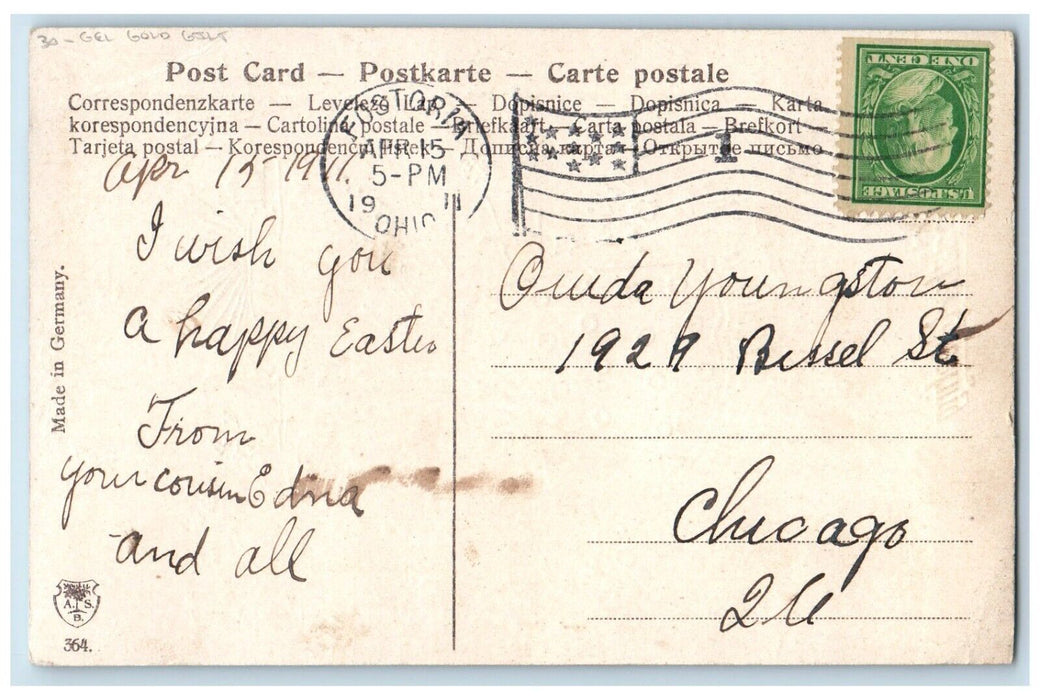 30 - GEL GOLD GILT
Post Card — Postkarte — Carte postale
Correspondenzkarte — Levelező Lap — Dopisnice — Dopisnica — Karta
korespondencyjna — Cartolina postale — Briefkaart — Carta postala — Brefkort —
Tarjeta postal — Korespondenční lístek — Дописна карта — Открытое письмо
FOSTORIA
APR 15
5-PM
1911
OHIO
1
ONE CENT
U.S. POSTAGE
Apr 15-1911
I wish you
a happy Easter
From
your cousin Edna
and all
Ouida Youngston
1929 Bissel St
Chicago
Made in Germany.
A. S.
B.
364.